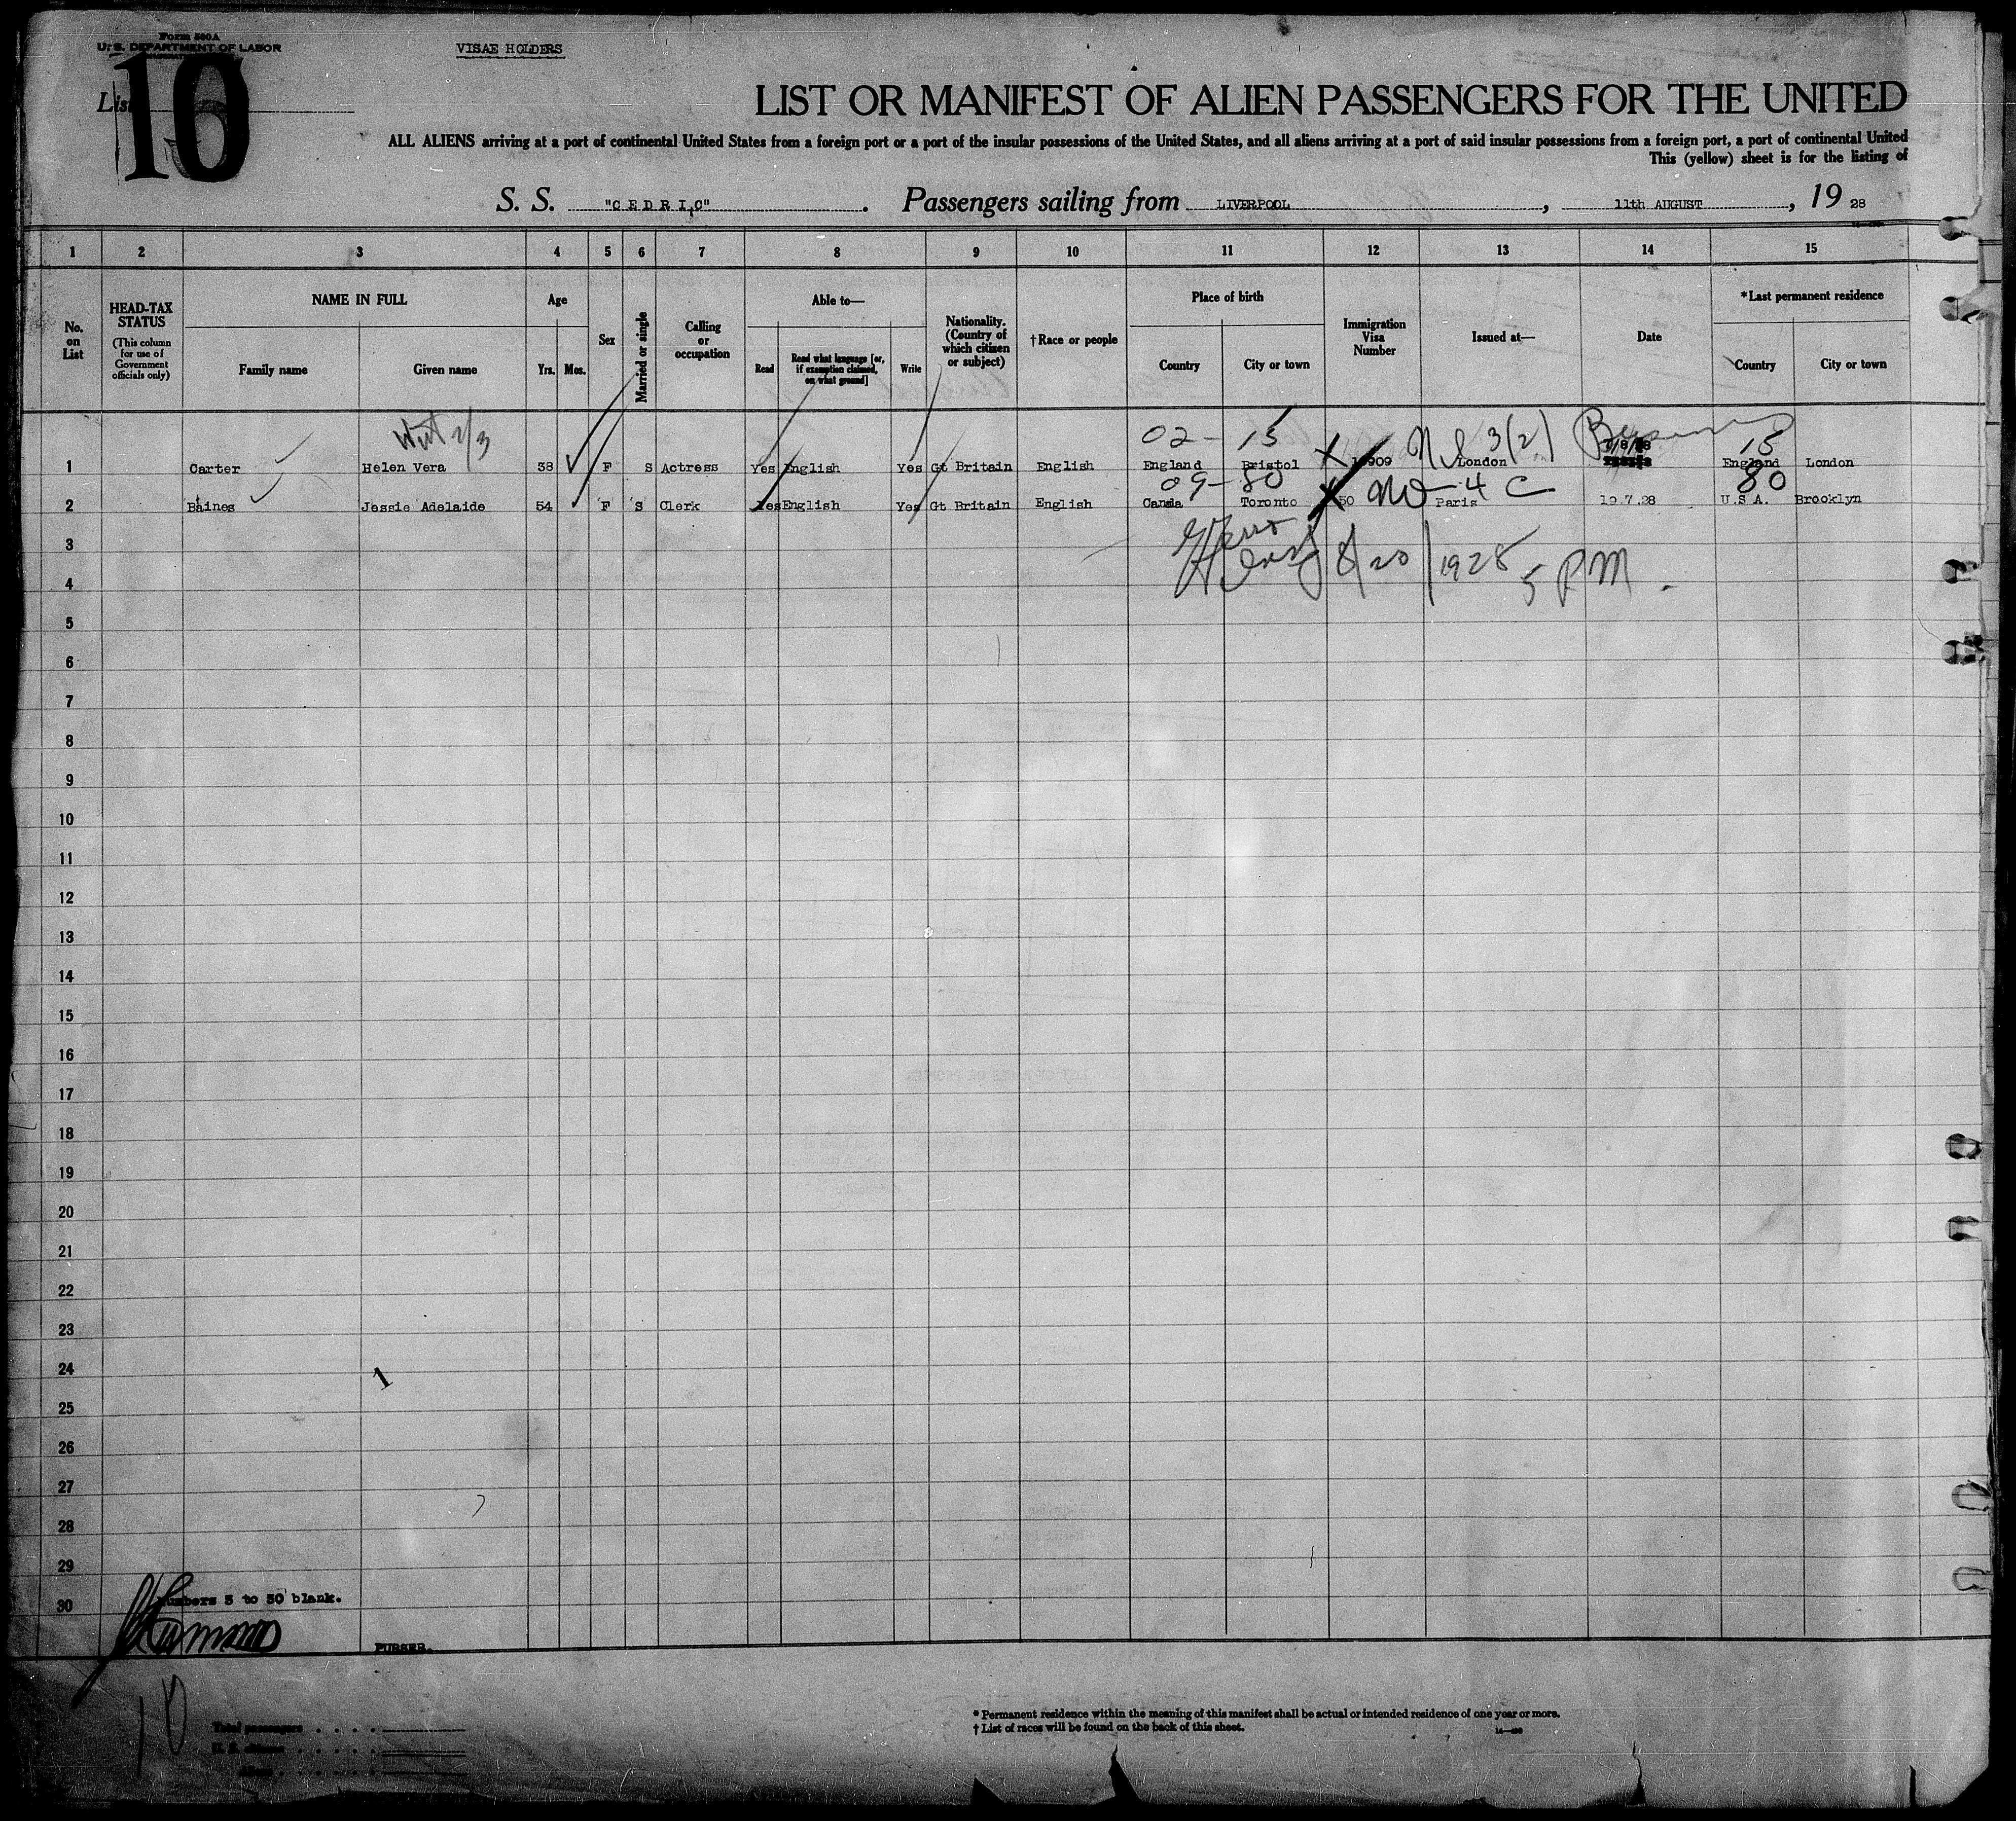 Form 500A
U. S. DEPARTMENT OF LABOR
VISAE HOLDERS
List 10
LIST OR MANIFEST OF ALIEN PASSENGERS FOR THE UNITED
ALL ALIENS arriving at a port of continental United States from a foreign port or a part of the insular possessions of the United States, and all aliens arriving at a port of said insular possessions from a foreign port, a part of continental United
This (yellow) sheet is for the listing of
S. S. "CEDRIC". Passengers sailing from LIVERPOOL, 11th AUGUST, 19 28
1 2 3 4 5 6 7 8 9 10 11 12 13 14 15
No. on List
HEAD-TAX STATUS (This column for use of Government officials only)
NAME IN FULL
Family name Given name
Age
Yrs. Mos.
Sex
Married or single
Calling or occupation
Able to—
Read Read what language [or, if exemption claimed, on what ground] Write
Nationality. (Country of which citizen or subject)
†Race or people
Place of birth
Country City or town
Immigration Visa Number
Issued at—
Date
*Last permanent residence
Country City or town
02 - 15 3(2) 15
1 Carter Helen Vera 38 F S Actress Yes English Yes Gt Britain English England Bristol London England London
09 - 80 4 C 80
2 Baines Jessie Adelaide 54 F S Clerk Yes English Yes Gt Britain English Canda Toronto Paris 19.7.28 U.S.A. Brooklyn
3
8/20/1928 5 PM.
4
5
6
7
8
9
10
11
12
13
14
15
16
17
18
19
20
21
22
23
24
1
25
26
27
28
29
30
Numbers 3 to 30 blank.
PURSER.
10
Total passengers
U. S. citizens
Aliens
* Permanent residence within the meaning of this manifest shall be actual or intended residence of one year or more.
† List of races will be found on the back of this sheet.